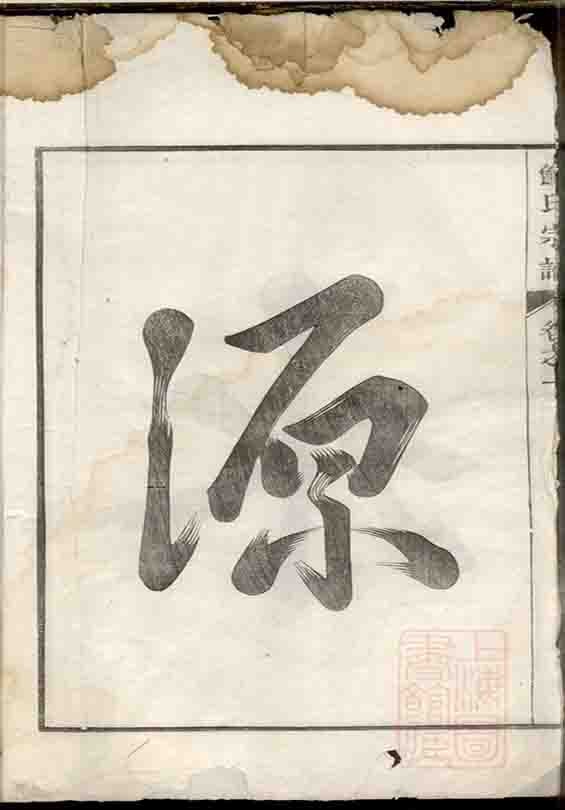 源
氏宗譜 卷之一
上海圖書館藏